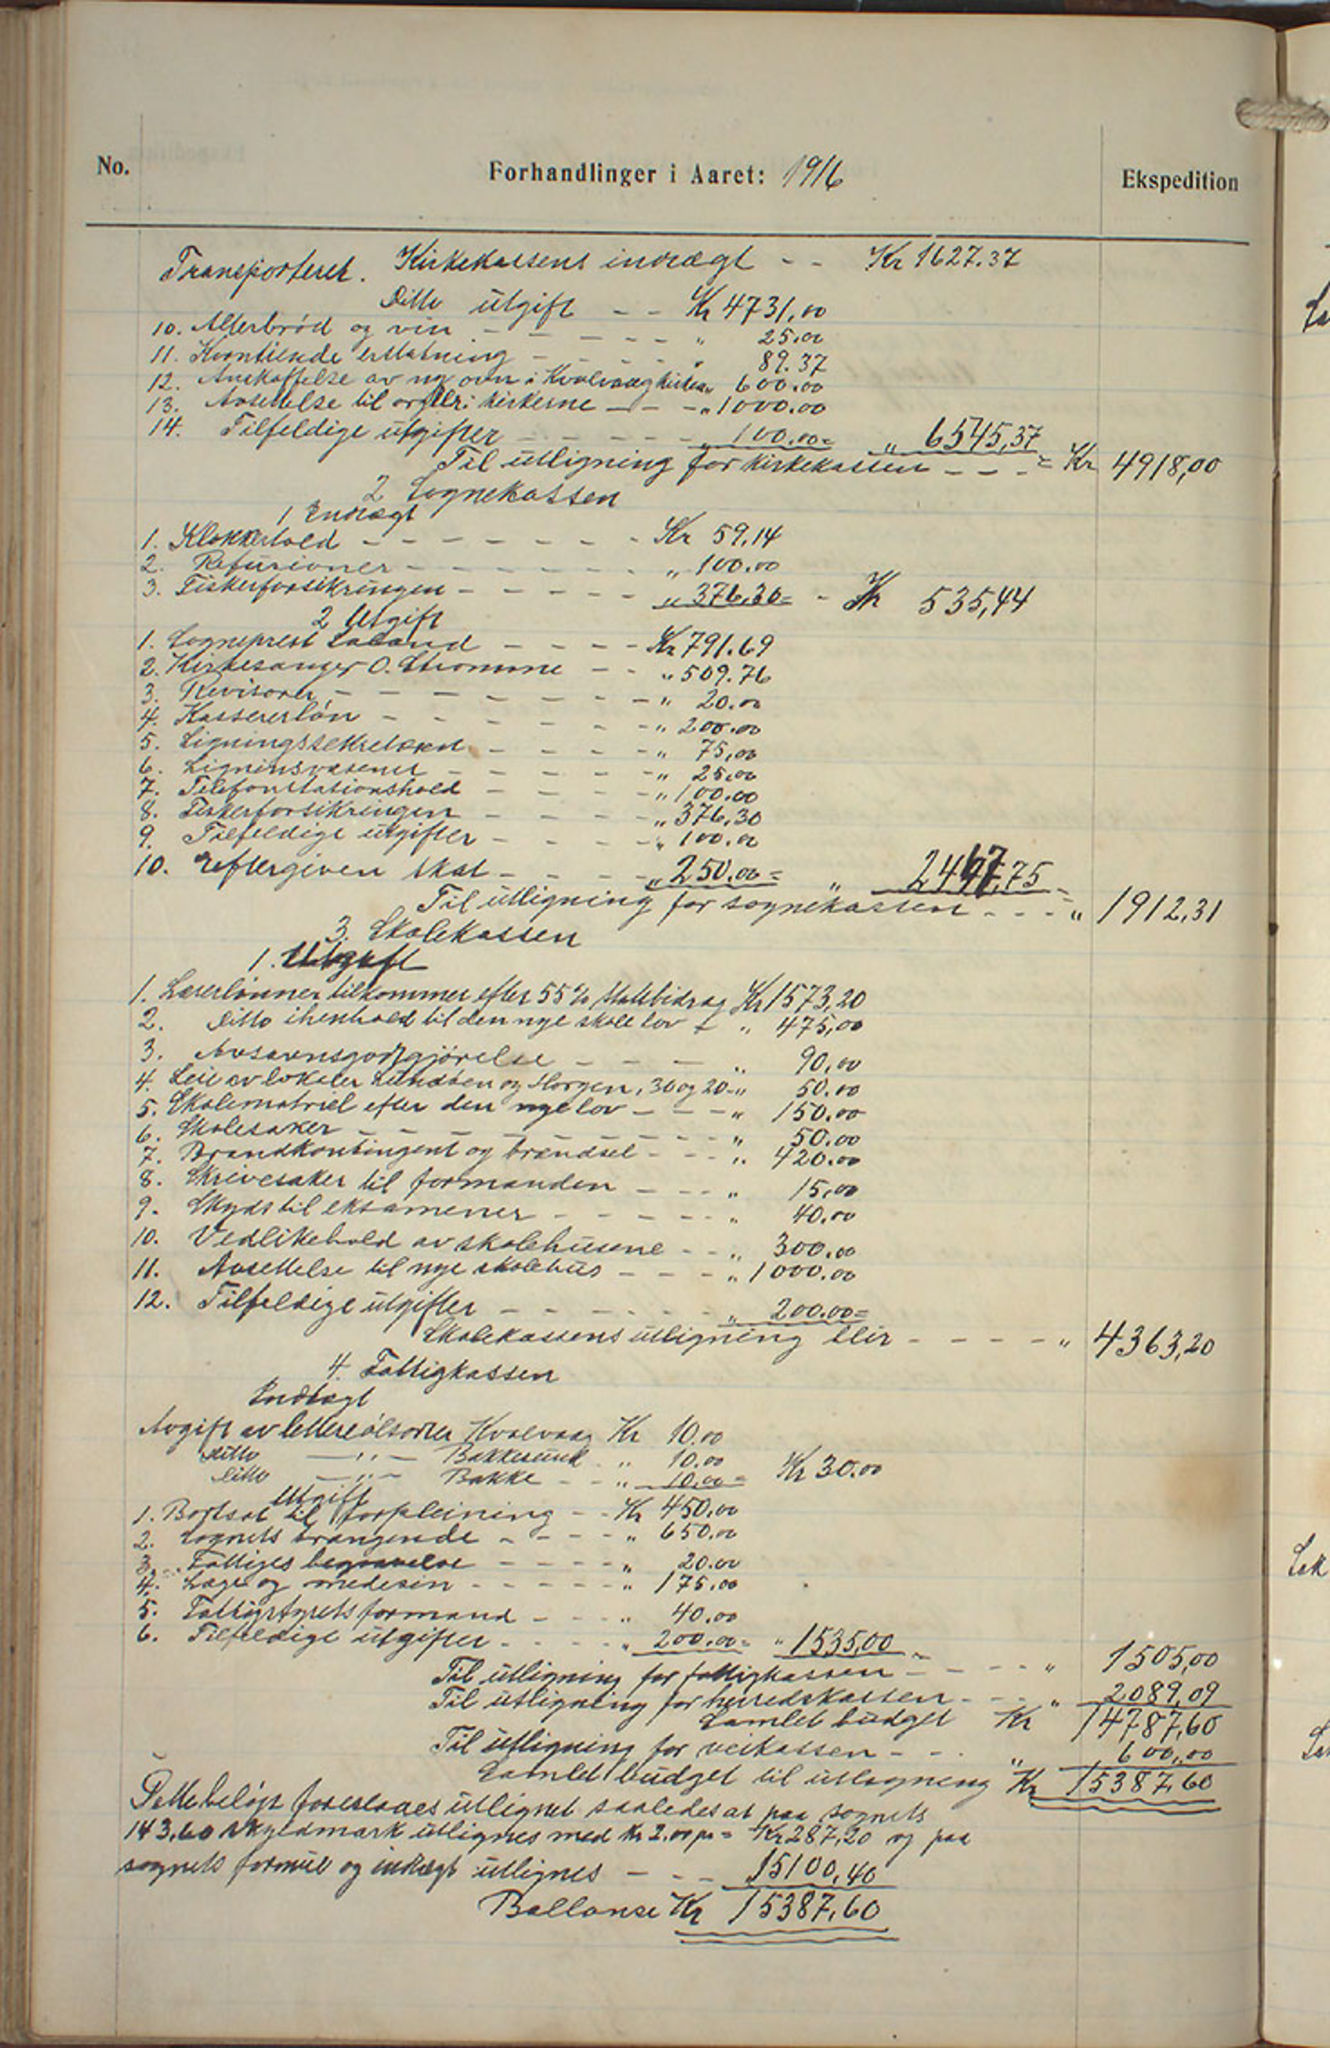 No. Forhandlinger i Aaret: 1916 Ekspedition
Transporteret. Kirkekassens indtægt - - Kr 1627.37
Ditto utgift - - Kr 4731,00
10. Alterbrød og vin - - - - - " 25.00
11. Korntiende erstatning - - - - " 89.37
12. Anskaffelse av ny ovn i Kvalvaag kirke " 600.00
13. Avsettelse til orgler i kirkerne - - - " 1000.00
14. Tilfeldige utgifter - - - - - " 100.00 = " 6545,37
Til utligning for kirkekassen - - - = Kr 4918,00
2 Sognekassen
1 Indtægt
1. Klokkerhold - - - - - - - Kr 59.14
2. Refusioner - - - - - - " 100.00
3. Fiskerforsikringen - - - - - " 376,30 = - Kr 535,44
2 Utgift
1. Sogneprest Laland - - - - Kr 791.69
2. Kirkesanger O. Strømme - - " 509.76
3. Revisorer - - - - - - - " 20.00
4. Kassererløn - - - - - - " 200.00
5. Ligningssekretæren - - - - " 75,00
6. Ligninsvæsenet - - - - - " 25,00
7. Telefonstationshold - - - - " 100.00
8. Fiskerforsikringen - - - - " 376,30
9. Tilfeldige utgifter - - - - " 100.00
10. Eftergiven skat - - - - " 250.00 = " 2447,75
Til utligning for sognekassen - - - " 1912,31
3. Skolekassen
1. Utgift
1. Lærerlønner tilkommer efter 55% statsbidrag Kr 1573,20
2. Ditto i henhold til den nye skole lov - " 475,00
3. Avsavnsgodtgjørelse - - - " 90,00
4. Leie av lokaler Lundøen og Horgen, 30 og 20 - " 50.00
5. Skolematriel efter den nye lov - - - " 150.00
6. Skolesaker - - - - - - - - " 50.00
7. Brandkontingent og brændsel - - - " 420.00
8. Skrivesaker til formanden - - - " 15,00
9. Skyds til eksamener - - - - - " 40.00
10. Vedlikehold av skolehusene - - " 300.00
11. Avsettelse til nye skolehus - - - " 1000.00
12. Tilfeldige utgifter - - - - - - " 200.00 =
Skolekassens utligning blir - - - - - " 4363,20
4. Fattigkassen
Indtægt
Avgift av lettereølsorter Kvalvaag Kr 10.00
Ditto - " - Bakkesund " 10.00
Ditto - " - Bakke - - " 10,00 = Kr 30.00
Utgift
1. Bortsat til forpleining - - Kr 450,00
2. Sognets trængende - - - - " 650.00
3. Fattiges begravelse - - - - " 20.00
4. Læge og medesin - - - - - " 175.00
5. Fattigstyrets formand - - - " 40.00
6. Tilfeldige utgifter - - - - " 200.00 = " 1535,00
Til utligning for fattigkassen - - - - " 1505,00
Til utligning for herredskassen - - - " 2089,09
Samlet budget Kr 14787,60
Til utligning for veikassen - - - " 600,00
Samlet budget til utligning Kr 15387,60
Dette beløp foreslaaes utlignet saaledes at paa sognets
143,60 skyldmark utlignes med Kr 2.00 pr = Kr 287,20 og paa
sognets formue og indtægt utlignes - - - 15100,40
Ballanse Kr 15387,60